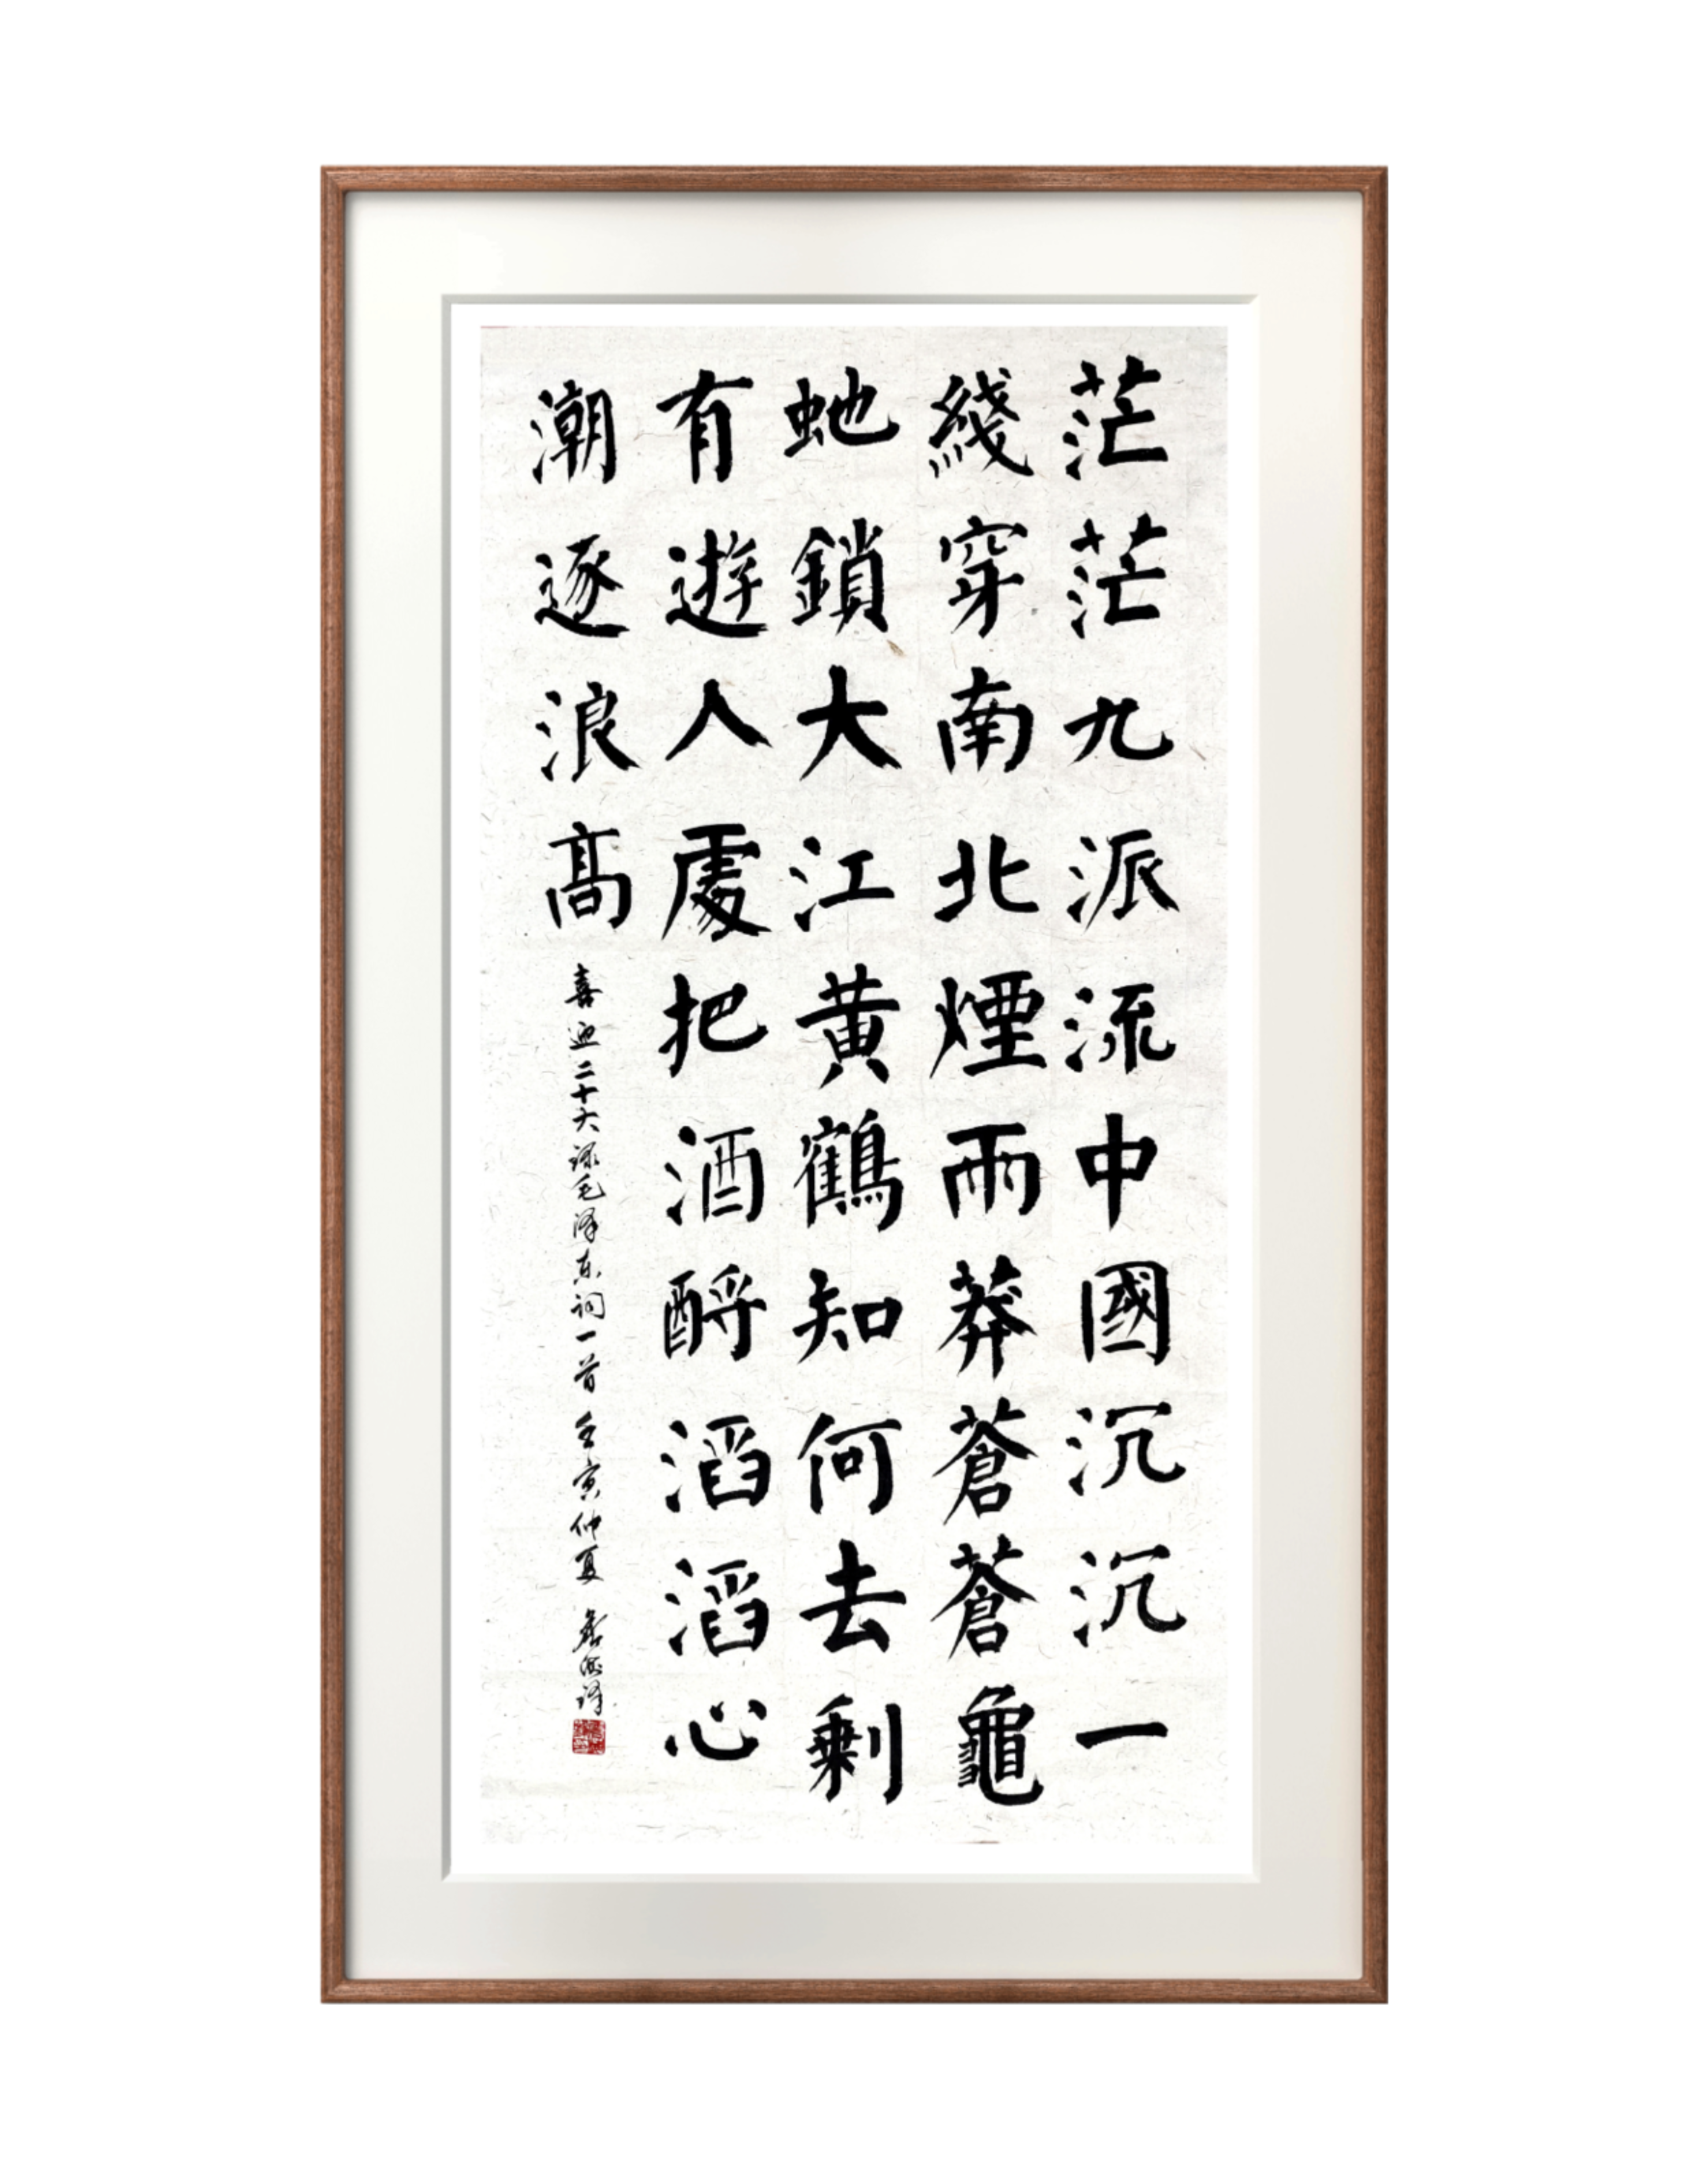 茫茫九派流中國沉沉一
綫穿南北煙雨莽蒼蒼龜
虵鎖大江黃鶴知何去剩
有遊人處把酒酹滔滔心
潮逐浪高
喜迎二十大录毛泽东词一首 壬寅仲夏